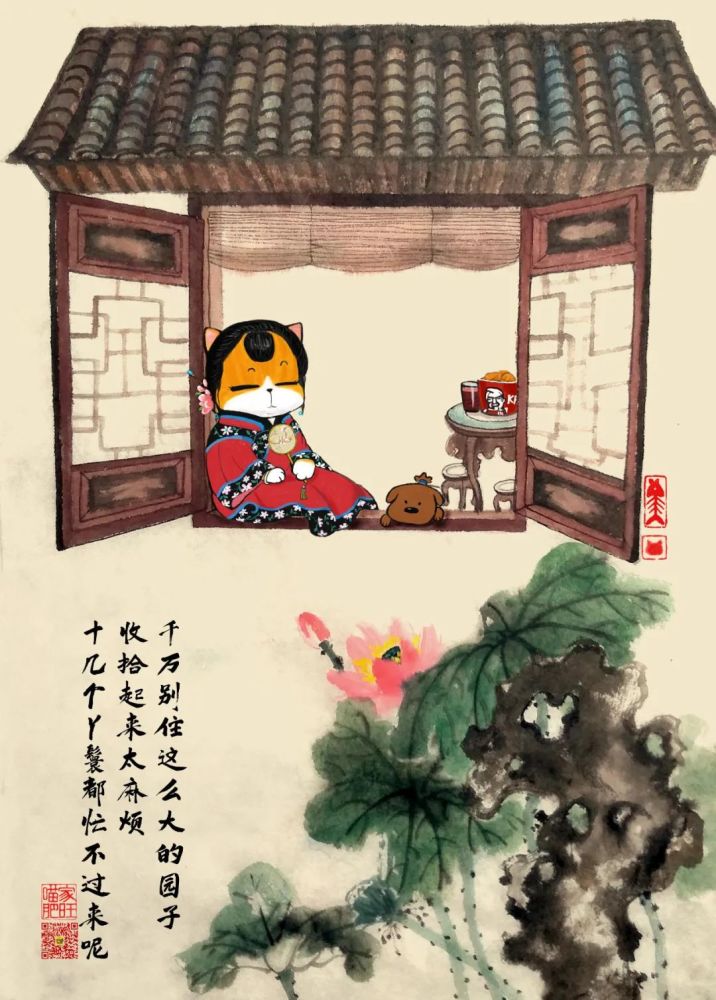 千万别住这么大的园子
收拾起来太麻烦
十几个丫鬟都忙不过来呢
KF
家旺
喵肥